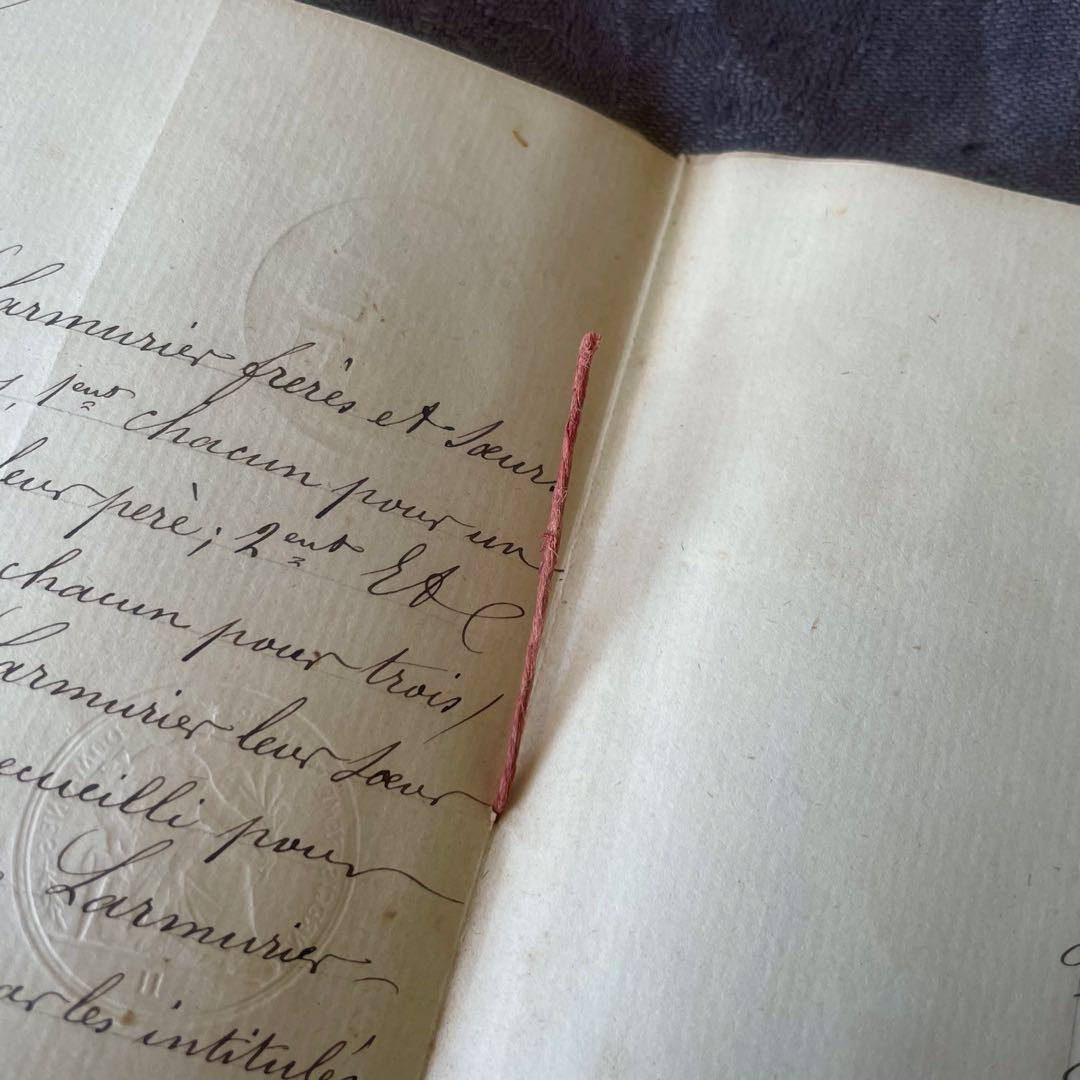 Larmurier frères et sœur.
1ent chacun pour un
leur père; 2ent Et
chacun pour trois
Larmurier leur sœur
recueilli pour
Larmurier
par les intitulés